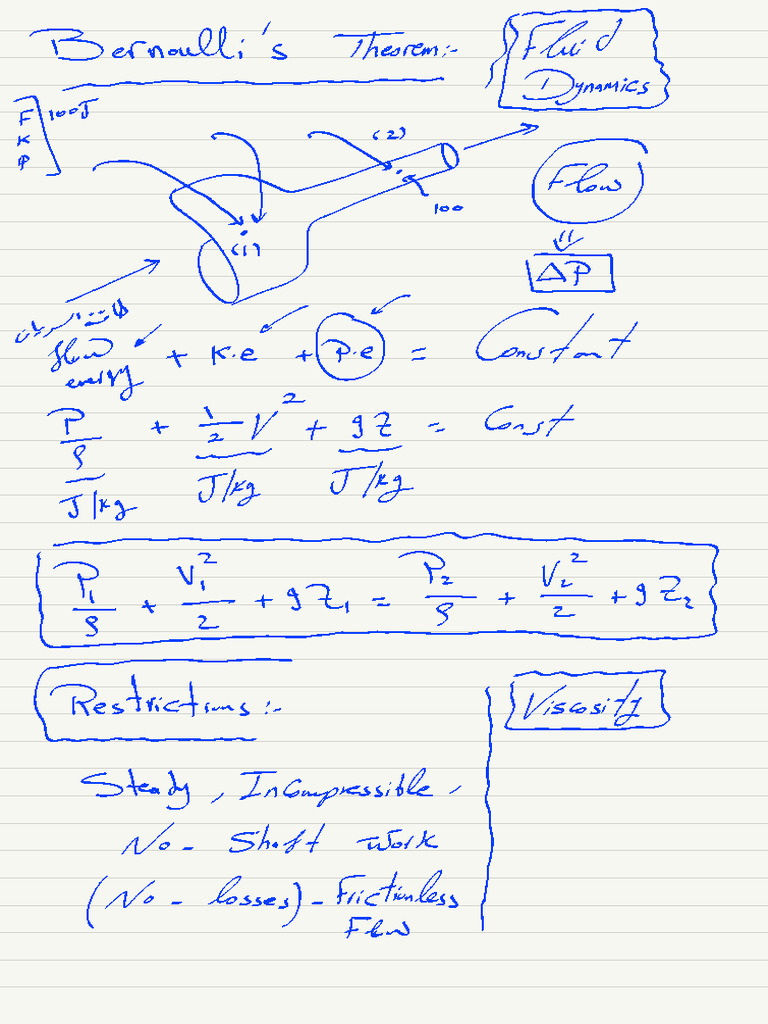 Bernoulli's Theorem:-
Fluid
Dynamics
F
K
P
100J
(2)
100
(1)
Flow
ΔP
طاقة السريان
flow energy + K.e + P.e = Constant
P/ρ + 1/2 V² + gZ = Const
J/kg J/kg J/kg
P₁/ρ + V₁²/2 + gZ₁ = P₂/ρ + V₂²/2 + gZ₂
Restrictions:-
Viscosity
Steady, Incompressible,
No - Shaft work
(No - losses) - Frictionless
Flow